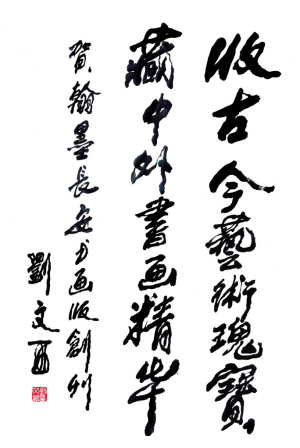 收古今藝術瑰寶
藏中外書画精华
贺翰墨長安书画版創刊
劉文西